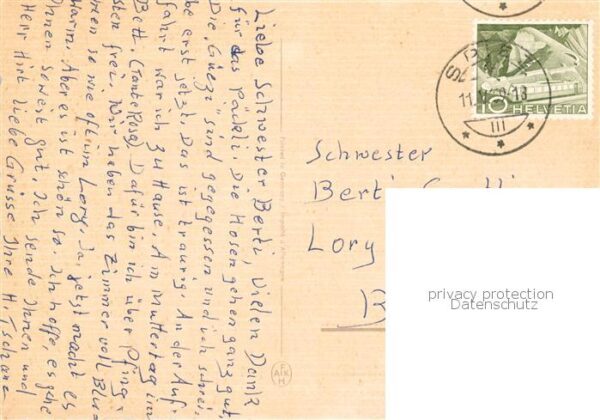 Liebe Schwester Berti, Vielen Dank
für das Päckli. Die Hosen gehen ganz gut,
Die "Guezi" sind gegessen und ich schrei-
be erst jetzt. Das ist traurig. An der Auf-
fahrt war ich zu Hause. Am Muttertag im
Bett. (Tante Rosa) Dafür bin ich über Pfing-
sten frei. Wir haben das Zimmer voll Blu-
men so wie oft im Lory. Ja, jetzt macht es
warm. Aber es ist schön so. Ich hoffe, es gehe
Ihnen soweit gut. Ich sende Ihnen und
Herr Hirt liebe Grüsse Ihre H. Tschanz
Printed in Germany
10 HELVETIA
11.
-18
III
Schwester
Berti
Lory
privacy protection
Datenschutz